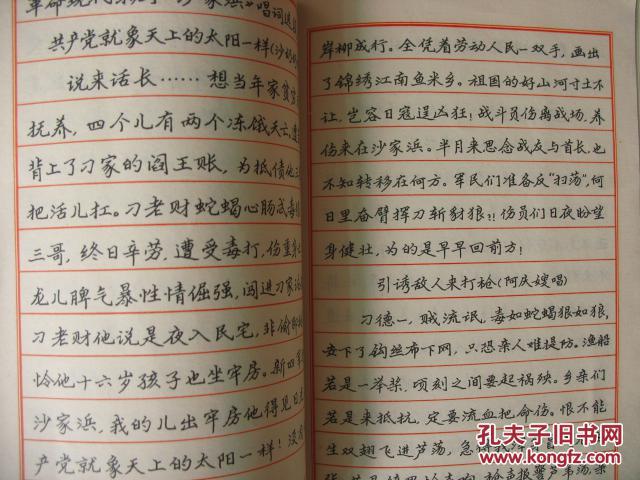 革命现代京剧《沙家浜》唱词选
共产党就象天上的太阳一样(沙奶奶
说来话长……想当年家贫穷
抚养,四个儿有两个冻饿夭亡,遭
背上了刁家的阎王账,为抵债他三
把活儿扛。刁老财蛇蝎心肠忒毒
三哥,终日辛劳,遭受毒打,伤重身
龙儿脾气暴性情倔强,闯进刁家论
刁老财他说是夜入民宅,非偷即
怜他十六岁孩子也坐牢房。新四军
沙家浜,我的儿出牢房他得见日
产党就象天上的太阳一样!
岸柳成行。全凭着劳动人民一双手,画出
了锦绣江南鱼米乡。祖国的好山河寸土不
让,岂容日寇逞凶狂!战斗员伤离战场,养
伤来在沙家浜。半月来思念战友与首长,也
不知转移在何方。军民们准备反“扫荡”,何
日里奋臂挥刀斩豺狼!!伤员们日夜盼望
身健壮,为的是早早回前方!
引诱敌人来打枪(阿庆嫂唱)
刁德一,贼流氓,毒如蛇蝎狠如狼,
安下了钩丝布下网,只恐亲人难提防。渔船
若是一举桨,顷刻之间要起祸殃。乡亲们
若是来抵抗,定要流血把命伤。恨不能
生双翅飞进芦荡,急得我
枪声报警芦苇荡,亲
孔夫子旧书网
www.kongfz.com